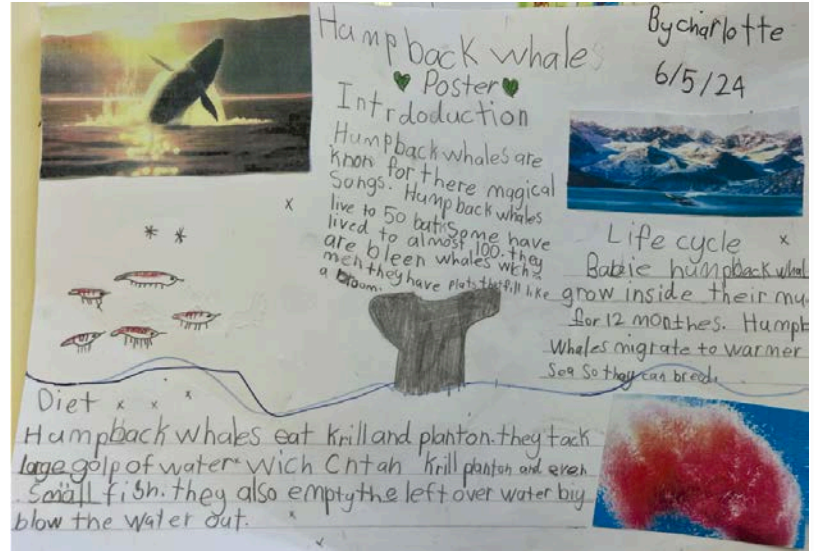 Humpback whales
Poster
By charlotte
6/5/24
Intrdoduction
Humpback whales are
knon for there magical
Songs. Humpback whales
live to 50 but some have
lived to almost 100. they
are bleen whales wich
men they have plats that fill like
a broom.
Life cycle
Babie humpback whal
grow inside their mu
for 12 monthes. Humpb
Whales migrate to warmer
Sea So they can breed.
Diet
Humpback whales eat Krill and planton. they tack
large golp of water Wich Cntah Krill planton and even
Small fish. they also empty the left over water biy
blow the water out.